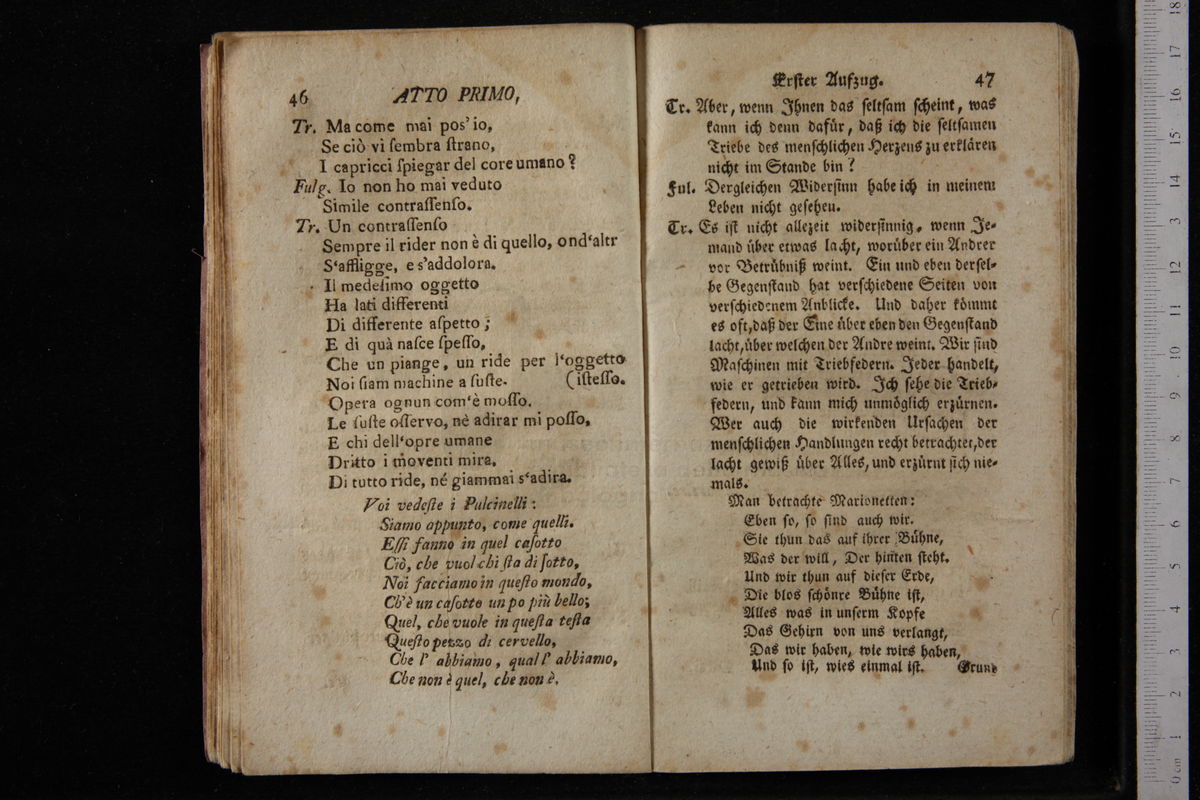 46 ATTO PRIMO,
Tr. Ma come mai pos' io,
Se ciò vi ſembra ſtrano,
I capricci ſpiegar del core umano?
Fulg. Io non ho mai veduto
Simile contraſſenſo.
Tr. Un contraſſenſo
Sempre il rider non è di quello, ond'altr
S'affligge, e s'addolora.
Il medeſimo oggetto
Ha lati differenti
Di differente aſpetto;
E di quà naſce ſpeſſo,
Che un piange, un ride per l'oggetto
Noi ſiam machine a ſuſte. (iſteſſo.
Opera ognun com'è moſſo.
Le ſuſte oſſervo, nè adirar mi poſſo,
E chi dell'opre umane
Dritto i moventi mira,
Di tutto ride, né giammai s'adira.
Voi vedeſte i Pulcinelli:
Siamo appunto, come quelli.
Eſſi fanno in quel caſotto
Ciò, che vuol chi ſta di ſotto,
Noi facciamo in queſto mondo,
Ch'è un caſotto un po più bello;
Quel, che vuole in queſta teſta
Queſto pezzo di cervello,
Che l' abbiamo, qual l' abbiamo,
Che non è quel, che non è.
Erſter Aufzug. 47
Tr. Aber, wenn Ihnen das ſeltſam ſcheint, was
kann ich denn dafür, daß ich die ſeltſamen
Triebe des menſchlichen Herzens zu erklären
nicht im Stande bin?
Ful. Dergleichen Widerſinn habe ich in meinem
Leben nicht geſehen.
Tr. Es iſt nicht allezeit widerſinnig, wenn Je-
mand über etwas lacht, worüber ein Andrer
vor Betrübniß weint. Ein und eben derſel-
be Gegenſtand hat verſchiedene Seiten von
verſchiedenem Anblicke. Und daher kömmt
es oft, daß der Eine über eben den Gegenſtand
lacht, über welchen der Andre weint. Wir ſind
Maſchinen mit Triebfedern. Jeder handelt,
wie er getrieben wird. Ich ſehe die Trieb-
federn, und kann mich unmöglich erzürnen.
Wer auch die wirkenden Urſachen der
menſchlichen Handlungen recht betrachtet, der
lacht gewiß über Alles, und erzürnt ſich nie-
mals.
Man betrachte Marionetten:
Eben ſo, ſo ſind auch wir.
Sie thun das auf ihrer Bühne,
Was der will, Der hinten ſteht.
Und wir thun auf dieſer Erde,
Die blos ſchönre Bühne iſt,
Alles was in unſerm Kopfe
Das Gehirn von uns verlangt,
Das wir haben, wie wirs haben,
Und ſo iſt, wies einmal iſt. Grund
0 cm 1 2 3 4 5 6 7 8 9 10 11 12 13 14 15 16 17 18